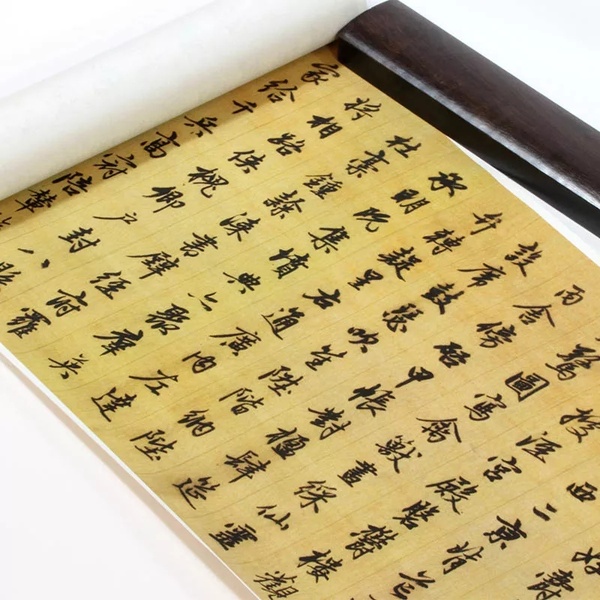 好爵
西二京背芒
據涇宮殿盤欝樓觀
驚圖寫禽獸畫綵仙靈
丙舍傍啓甲帳對楹肆筵
設席鼓瑟吹笙陞階納陛
弁轉疑星右通廣內左達
承明既集墳典亦聚群英
杜稾鍾隸漆書壁經府羅
將相路俠槐卿戶封八縣
家給千兵高冠陪輦